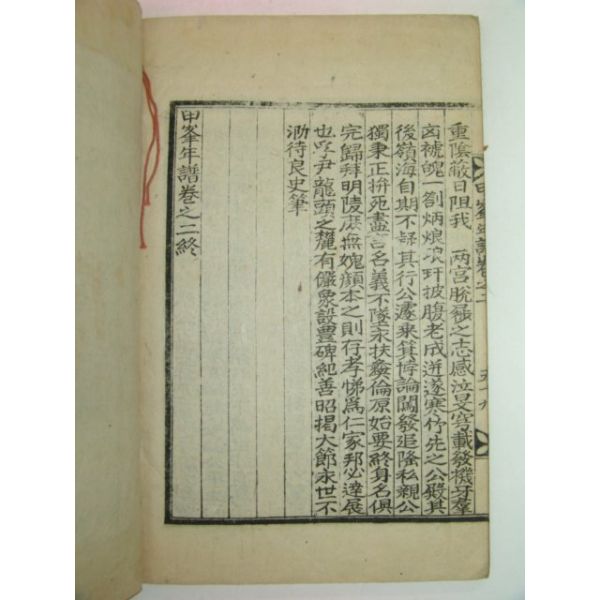 重陰蔽日阻我　兩宮脫屣之志感泣旻穹載發機牙羣
凶褫魄一劄炳烺琅玕披腹老成迸逐寒竹先之公殿其
後嶺海自期不疑其行公遽來箕悖論闖發追隆私親公
獨秉正拚死盡言名義不墜永扶彜倫原始要終身名俱
完歸拜明陵庶無媿顔本之則存孝悌爲仁家邦必達展
也吁尹龍頭之麓有儼象設豊碑紀善昭揭大節永世不
泐待良史筆
甲峯年譜卷之二終
甲峯年譜卷之二
五十九